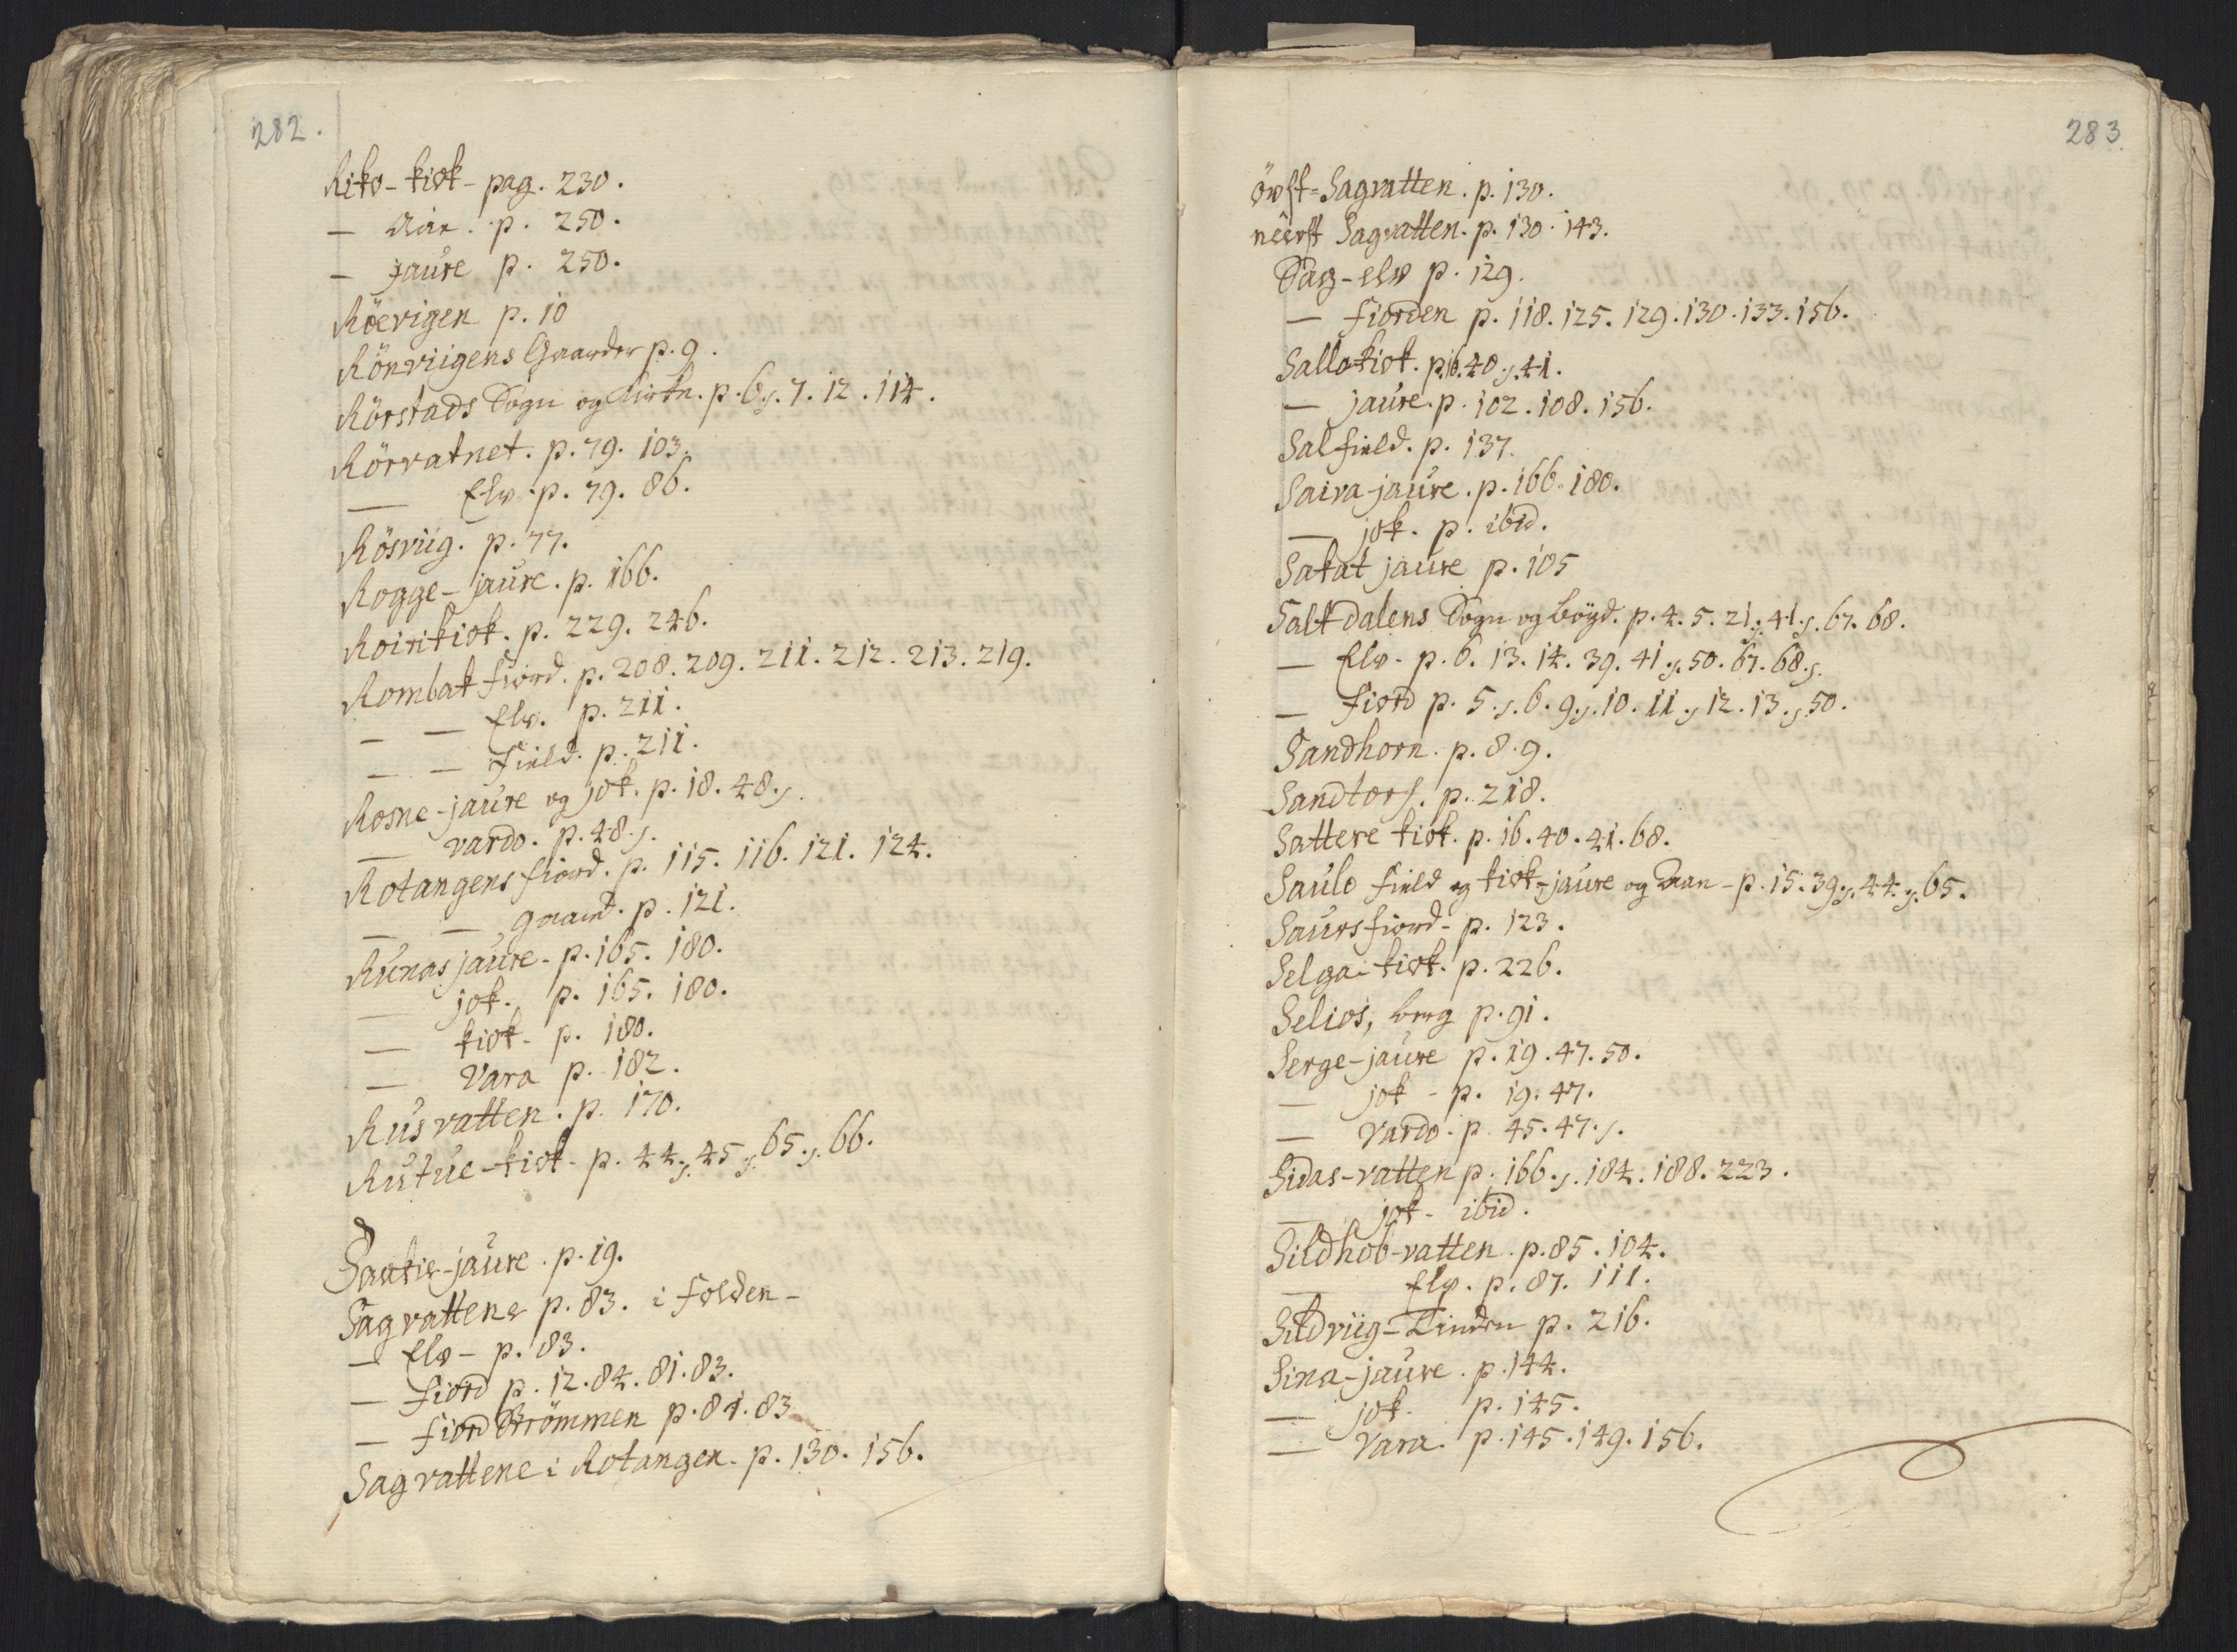 282.
Riko-kiok- pag. 230.
— Aan. p. 250.
— Jaure p. 250.
Röevigen p. 10
Rönviigens Gaarder p. 9.
Rörstads Sogn og Kirke. p. 6 s. 7. 12. 114.
Rörvatnet. p. 79. 103.
— Elv. p. 79. 86.
Rösviig. p. 77.
Rogge-jaure. p. 166.
Roirikiok. p. 229. 246.
Rombak fiord. p. 208. 209. 211. 212. 213. 219.
— — Elv. p. 211.
— — Field. p. 211.
Rosne-jaure og jok. p. 18. 48 s.
— vardo. p. 48. s.
Rotangens fiord. p. 115. 116. 121. 124.
— — gaard. p. 121.
Runas jaure - p. 165. 180.
— jok. p. 165. 180.
— kiok - p. 180.
— Vara p. 182.
Rus vatten. p. 170.
Rutue-kiok - p. 44 s. 45 s. 65. s. 66.
Saukie-jaure. p. 19.
Sagvattene p. 83. i Folden -
— Elv - p. 83.
— Fiord p. 12. 84. 81. 83.
— fiord Strömmen p. 81. 83
Sagvattene i Rotangen. p. 130. 156.
283.
övst=Sagvatten. p. 130.
neerst Sagvatten. p. 130. 143.
Sag-elv p. 129.
— fiorden p. 118. 125. 129. 130. 133. 156.
Sallokiok. p. 16. 40. s. 41.
— jaure. p. 102. 108. 156.
Salfield. p. 137.
Saiva-jaure. p. 166. 180.
— jok. p. ibid.
Sakat jaure p. 105
Saltdalens Sogn og Bögd. p. 4. 5. 21 s. 41. s. 67. 68.
— Elv - p. 6. 13. 14. 39. 41. s. 50. 67. 68. s.
— Fiord p. 5. s. 6. 9. s. 10. 11. s 12. 13. s. 50.
Sandhorn. p. 8. 9.
Sandtorf. p. 218.
Sattere kiok. p. 16. 40. 41. 68.
Saulo field og kiok, jaure og Aan - p. 15. 39 s. 44. s. 65.
Saursfiord - p. 123.
Selgai kiok. p. 226.
Selios, berg p. 91.
Serge-jaure p. 19. 47. 50.
— jok - p. 19. 47.
— Vardo. p 45. 47. s.
Sidas-vatten p. 166. s. 184. 188. 223.
— jok - ibid.
Sildhob-vatten. p. 85. 104.
— Elv. p. 87. 111.
Sildviig-Tinden p. 216.
Sina-jaure. p. 144.
— jok. p. 145.
— Vara. p. 145. 149. 156.